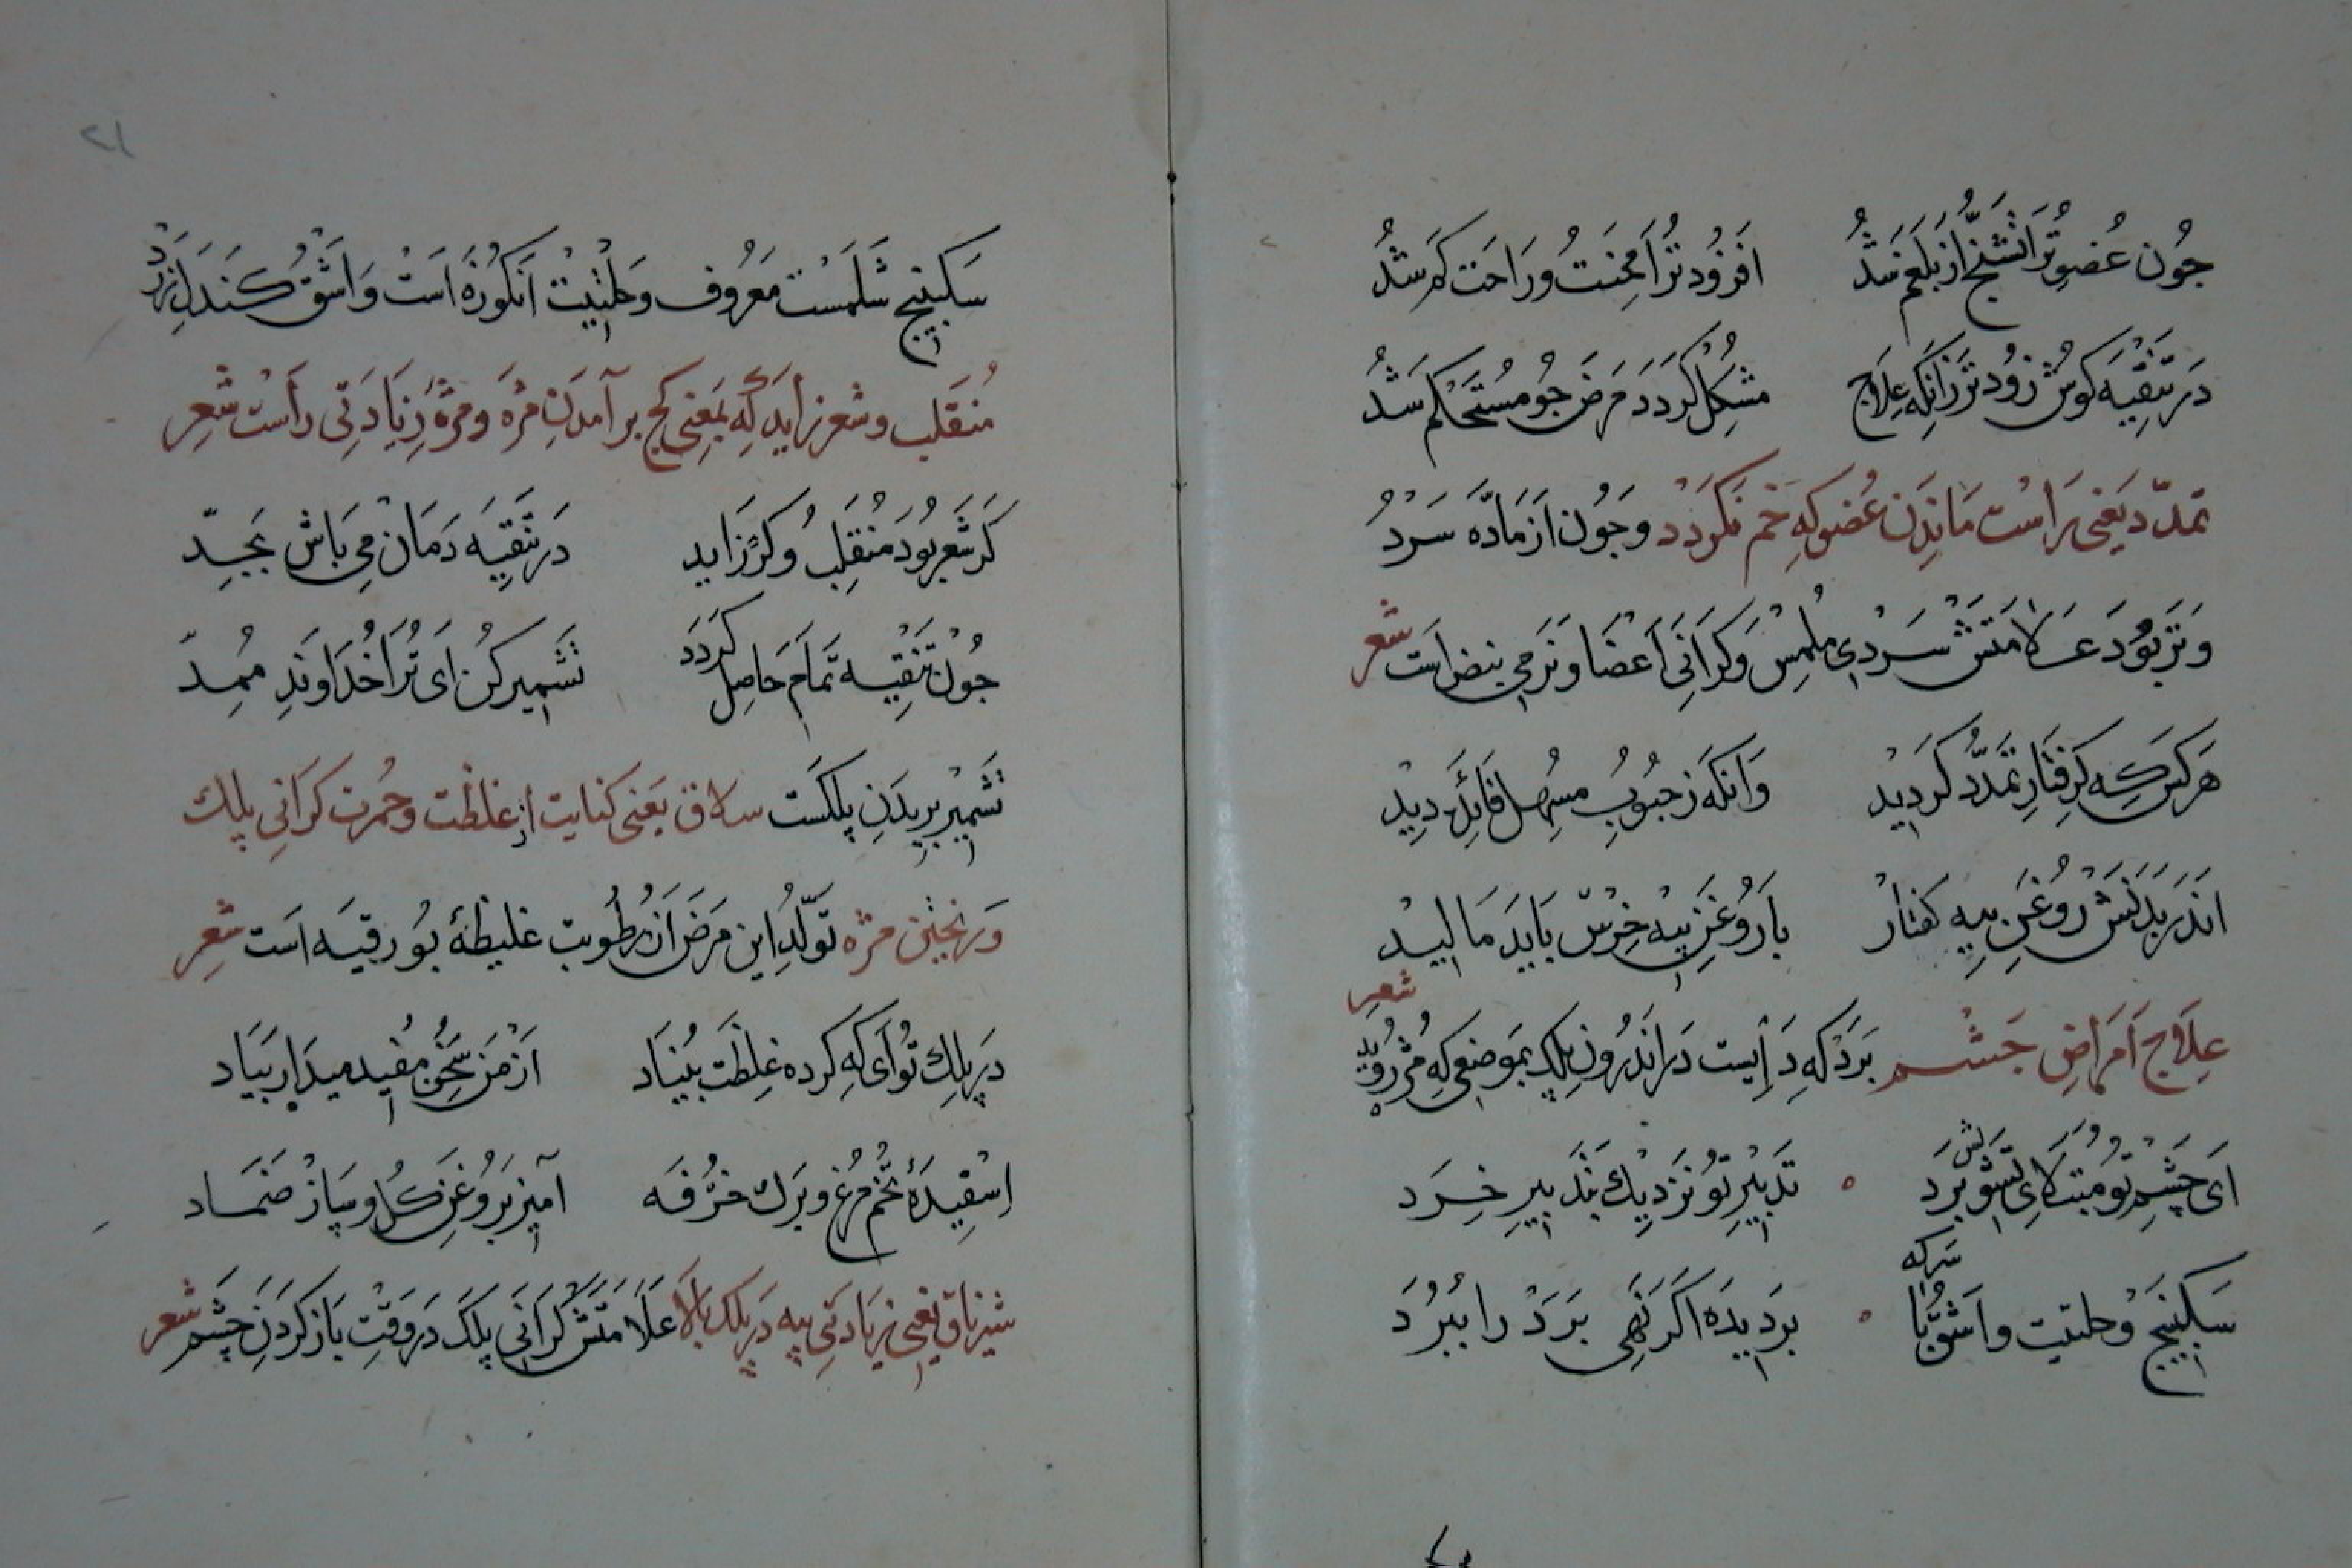 جون عضو ترا تشنج از بلغم شد افزود ترا محنت و راحت کم شد
در تنقیه کوش زودتر زانکه علاج مشکل کردد مرض جو مستحکم شد
تمدد یعنی راست ماندن عضو که خم نکردد وجون از ماده سرد
و تر بود علامتش سردی ملمس و کرانی اعضا و نرمی نبض است شعر
هر کس که کرفتار تمدد کردید وانکه ز حبوب مسهل فائده دید
اندر بدنش روغن پیه کفتار با روغن پیه خرس باید مالید
شعر
علاج امراض جشم برد که دایست در اندرون پلک بموضعی که مژه روید
ای چشم تو مبتلای تشویش برد تدبیر تو نزدیک بتدبیر خرد
سکبینج و حلتیت و اشق با سرکه بر دیده اکر نهی برد را ببرد
۲۱
سکبینج شلمست معروف و حلتیت انکوزه است و اشق کندل
منقلب و شعر زاید که بمعنی کج بر آمدن مژه و مژه زیادتی راست شعر
کر شعر بود منقلب و کر زاید در تنقیه دمان می باش بجد
جون تنقیه تمام حاصل کردد تشمیر کن ای ترا خداوند ممد
تشمیر بریدن پلکست سلاق یعنی کنایت از غلظت و حمرت کرانی پلک
وریختن مژه تولد این مرض از رطوبت غلیظهٔ بورقیه است شعر
در پلک تو ای که کرده غلظت بنیاد از من سخن مفید میدار بیاد
اسفیدهٔ تخم مرغ و برک خرفه آمیز بروغن کل و ساز ضماد
شرناق یعنی زیادتی پیه در پلک بالا علامتش کرانی پلک در وقت باز کردن چشم شعر